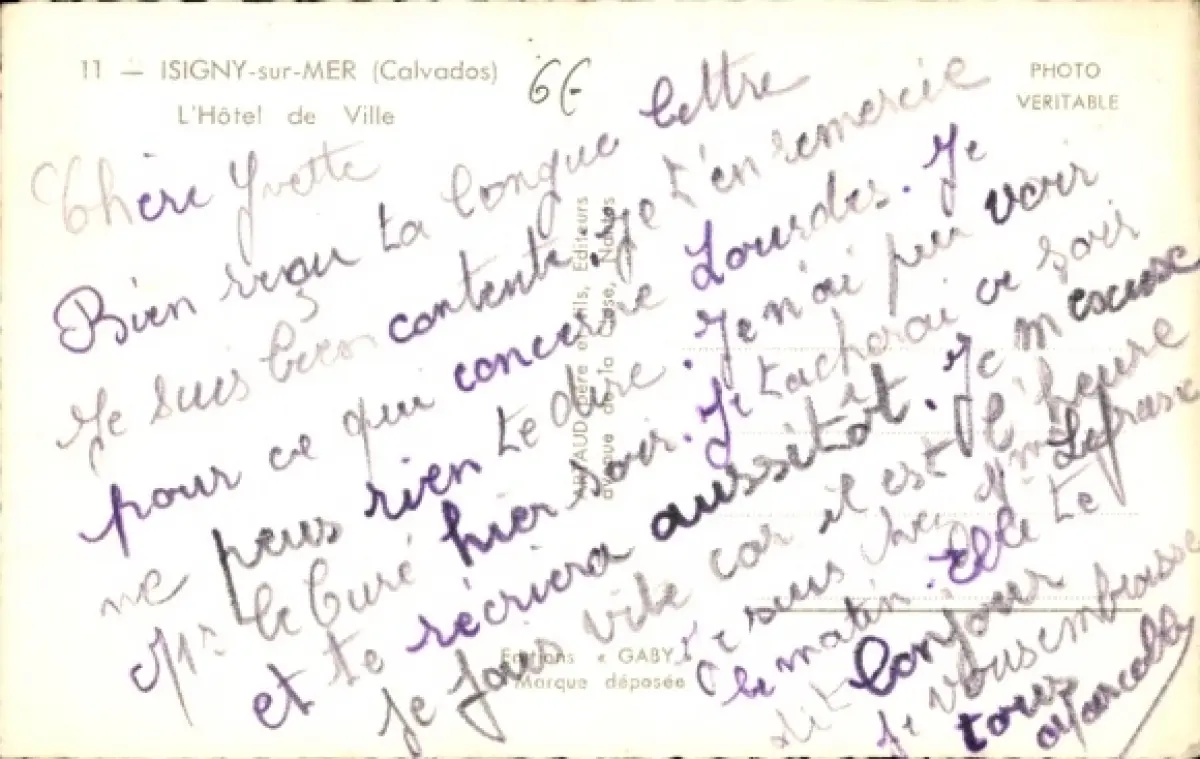 11 — ISIGNY-sur-MER (Calvados)
L'Hôtel de Ville
PHOTO
VERITABLE
6€
Chère Yvette
Bien reçu ta longue lettre
Je suis bien contente. Je t'en remercie
pour ce qui concerne Lourdes. Je
ne peus rien te dire. Je n'ai pu voir
Mr le Curé hier soir. Je tacherai ce soir
et te récriera aussitôt. Je m'excuse
Je fais vite car il est l'heure
Je suis chez Mme
ce matin. Elle te
dit bonjour
Je vous embrasse
tous
ARTAUD Père et Fils, Editeurs
avenue de la Close, Nantes
Editions « GABY »
Marque déposée